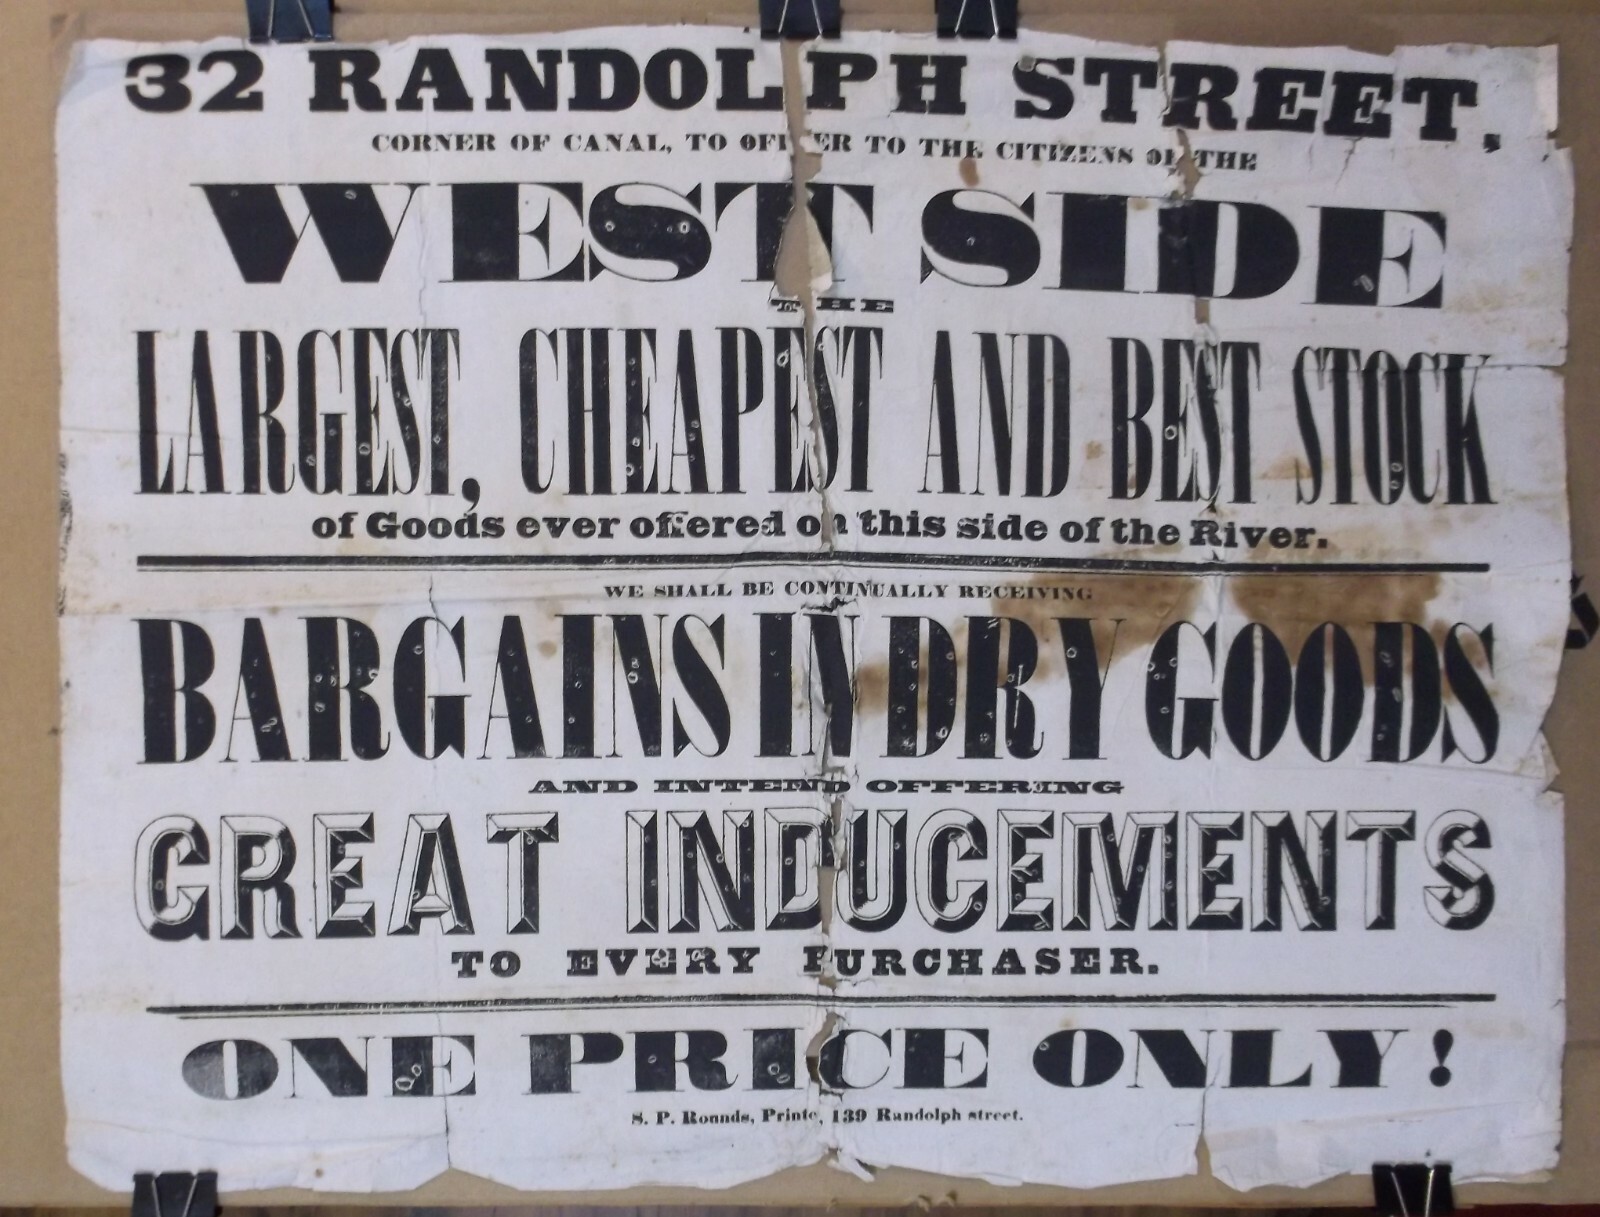 32 RANDOLPH STREET,
CORNER OF CANAL, TO OFFER TO THE CITIZENS OF THE
WEST SIDE
THE
LARGEST, CHEAPEST AND BEST STOCK
of Goods ever offered on this side of the River.
WE SHALL BE CONTINUALLY RECEIVING
BARGAINS IN DRY GOODS
AND INTEND OFFERING
GREAT INDUCEMENTS
TO EVERY PURCHASER.
ONE PRICE ONLY!
S. P. Rounds, Printe, 139 Randolph street.